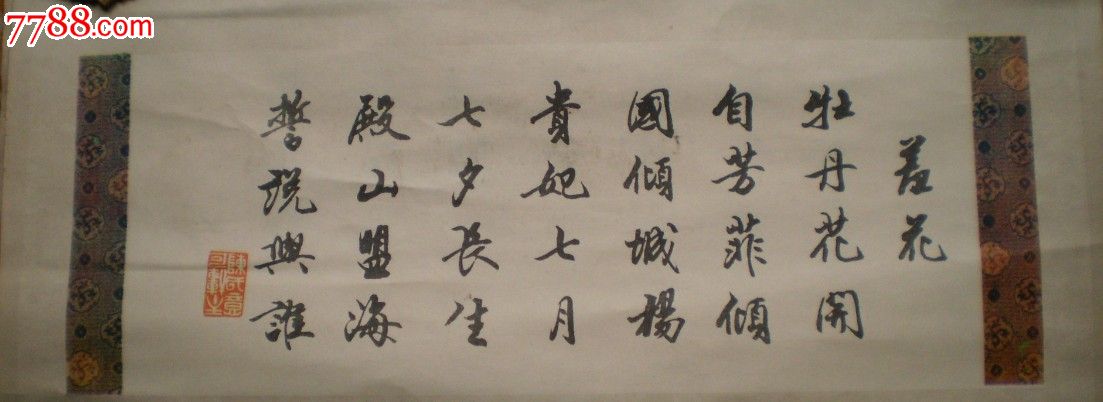 7788.com
羞花
牡丹花開
自芳菲傾
國傾城楊
貴妃七月
七夕長生
殿山盟海
誓説與誰